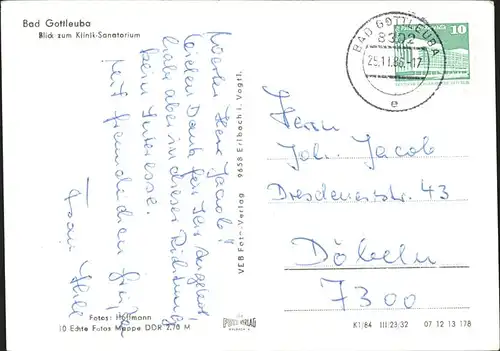 Bad Gottleuba
Blick zum Klinik-Sanatorium
Werter Herr Jacob!
Vielen Dank für Ihr Angebot,
habe aber in dieser Richtung
kein Interesse.
Mit freundlichen Grüßen
Fotos: Hoffmann
10 Echte Fotos Mappe DDR 2,70 M
VEB Foto-Verlag 9658 Erlbach i. Vogtl.
FOTO VERLAG
BAD GOTTLEUBA
8302
25.11.86-17
e
10
Herrn
Joh. Jacob
Dresdenerstr. 43
Döbeln
7300
K1/84 III:23:32 07 12 13 178